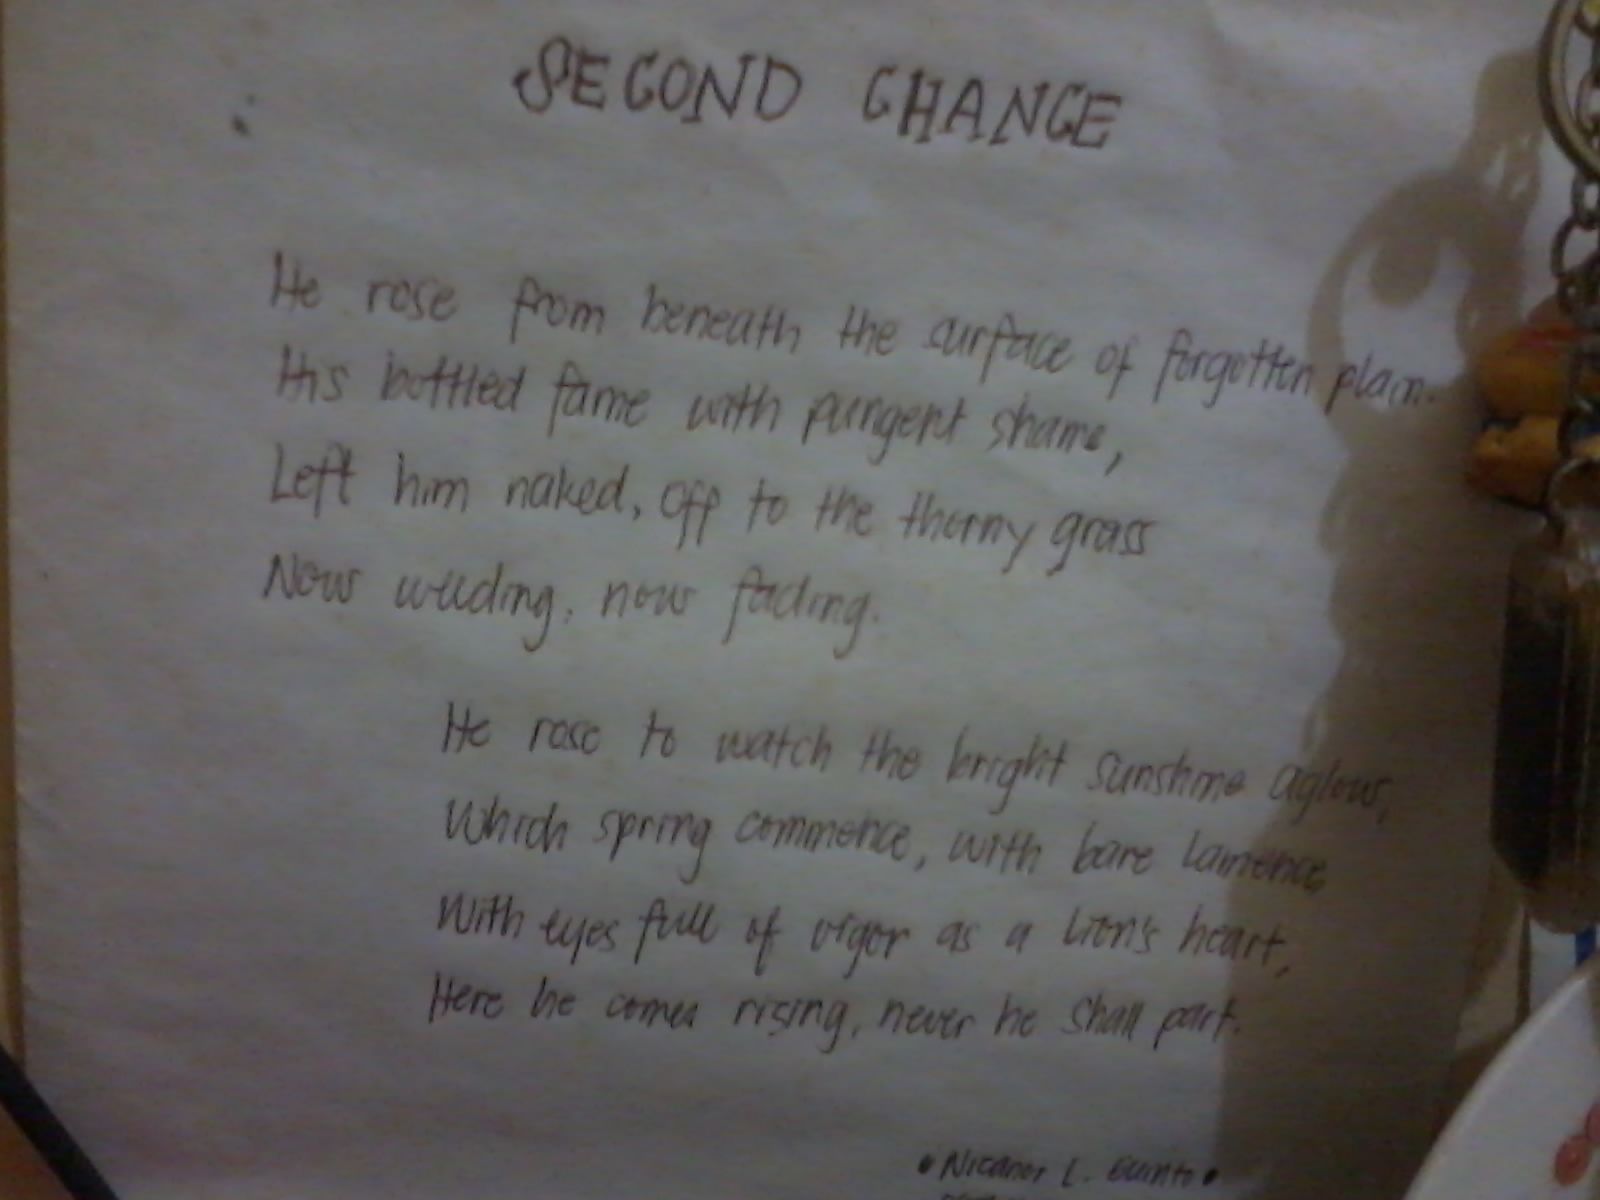 SECOND CHANCE
He rose from beneath the surface of forgotten plain.
His bottled fame with pungent shame,
Left him naked, off to the thorny grass
Now weeding, now fading.
He rose to watch the bright sunshine aglow,
Which spring commence, with bare lamence
With eyes full of vigor as a Lion's heart,
Here he comes rising, never he shall part.
• Nicanor L. Guinto •